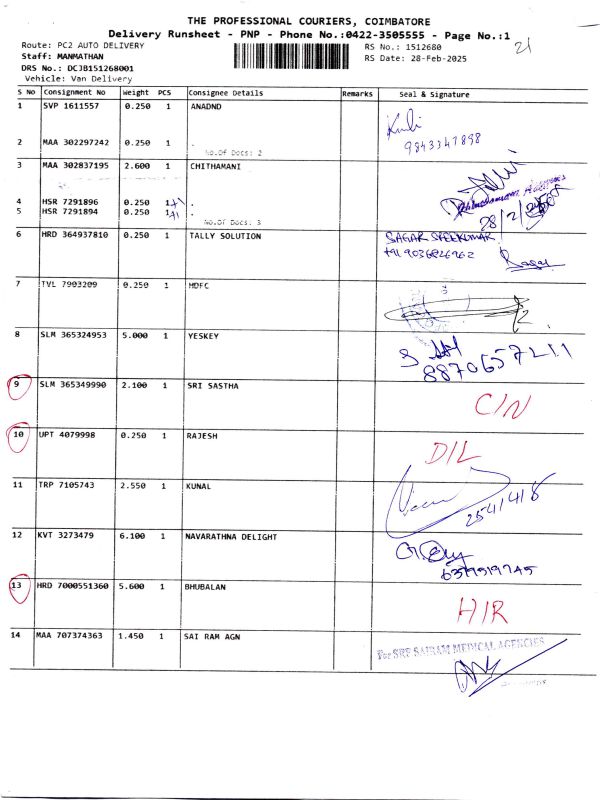 THE PROFESSIONAL COURIERS, COIMBATORE
Delivery Runsheet - PNP - Phone No.:0422-3505555 - Page No.:1
21
Route: PC2 AUTO DELIVERY
RS No.: 1512680
Staff: MANMATHAN
RS Date: 28-Feb-2025
DRS No.: DCJB151268001
Vehicle: Van Delivery
S No Consignment No Weight PCS Consignee Details Remarks Seal & Signature
1 SVP 1611557 0.250 1 ANADND
9843347898
2 MAA 302297242 0.250 1 .
No.Of Docs: 2
3 MAA 302837195 2.600 1 CHITHAMANI
4 HSR 7291896 0.250 1 .
5 HSR 7291894 0.250 1 .
28/2/
No.Of Docs: 3
6 HRD 364937810 0.250 1 TALLY SOLUTION SAGAR SREEKUMAR
+91 9036826262
Sagar
7 TVL 7903209 0.250 1 HDFC
8 SLM 365324953 5.000 1 YESKEY
8870657211
9 SLM 365349990 2.100 1 SRI SASTHA
C/N
10 UPT 4079998 0.250 1 RAJESH
D/L
11 TRP 7105743 2.550 1 KUNAL
12 KVT 3273479 6.100 1 NAVARATHNA DELIGHT
13 HRD 7000551360 5.600 1 BHUBALAN
H/R
14 MAA 707374363 1.450 1 SAI RAM AGN
For SRE SAIRAM MEDICAL AGENCIES